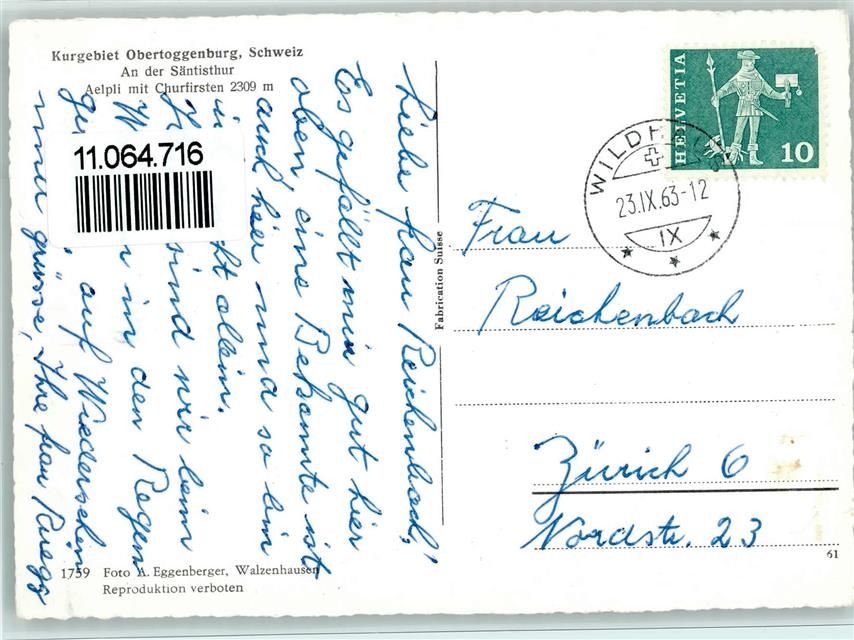 Kurgebiet Obertoggenburg, Schweiz
An der Säntisthur
Aelpli mit Churfirsten 2309 m
11.064.716
Liebe Frau Reichenbach,
Es gefällt mir gut hier
oben, eine Bekannte ist
auch hier und so bin
allein.
sind wir beim
in den Regen
auf Wiedersehen
grüsse, Ihre Frau Rüegg
1759 Foto A. Eggenberger, Walzenhausen
Reproduktion verboten
Fabrication Suisse
HELVETIA
10
WILDHAUS
23.IX.63-12
IX
Frau
Reichenbach
Zürich 6
Nordstr. 23
61